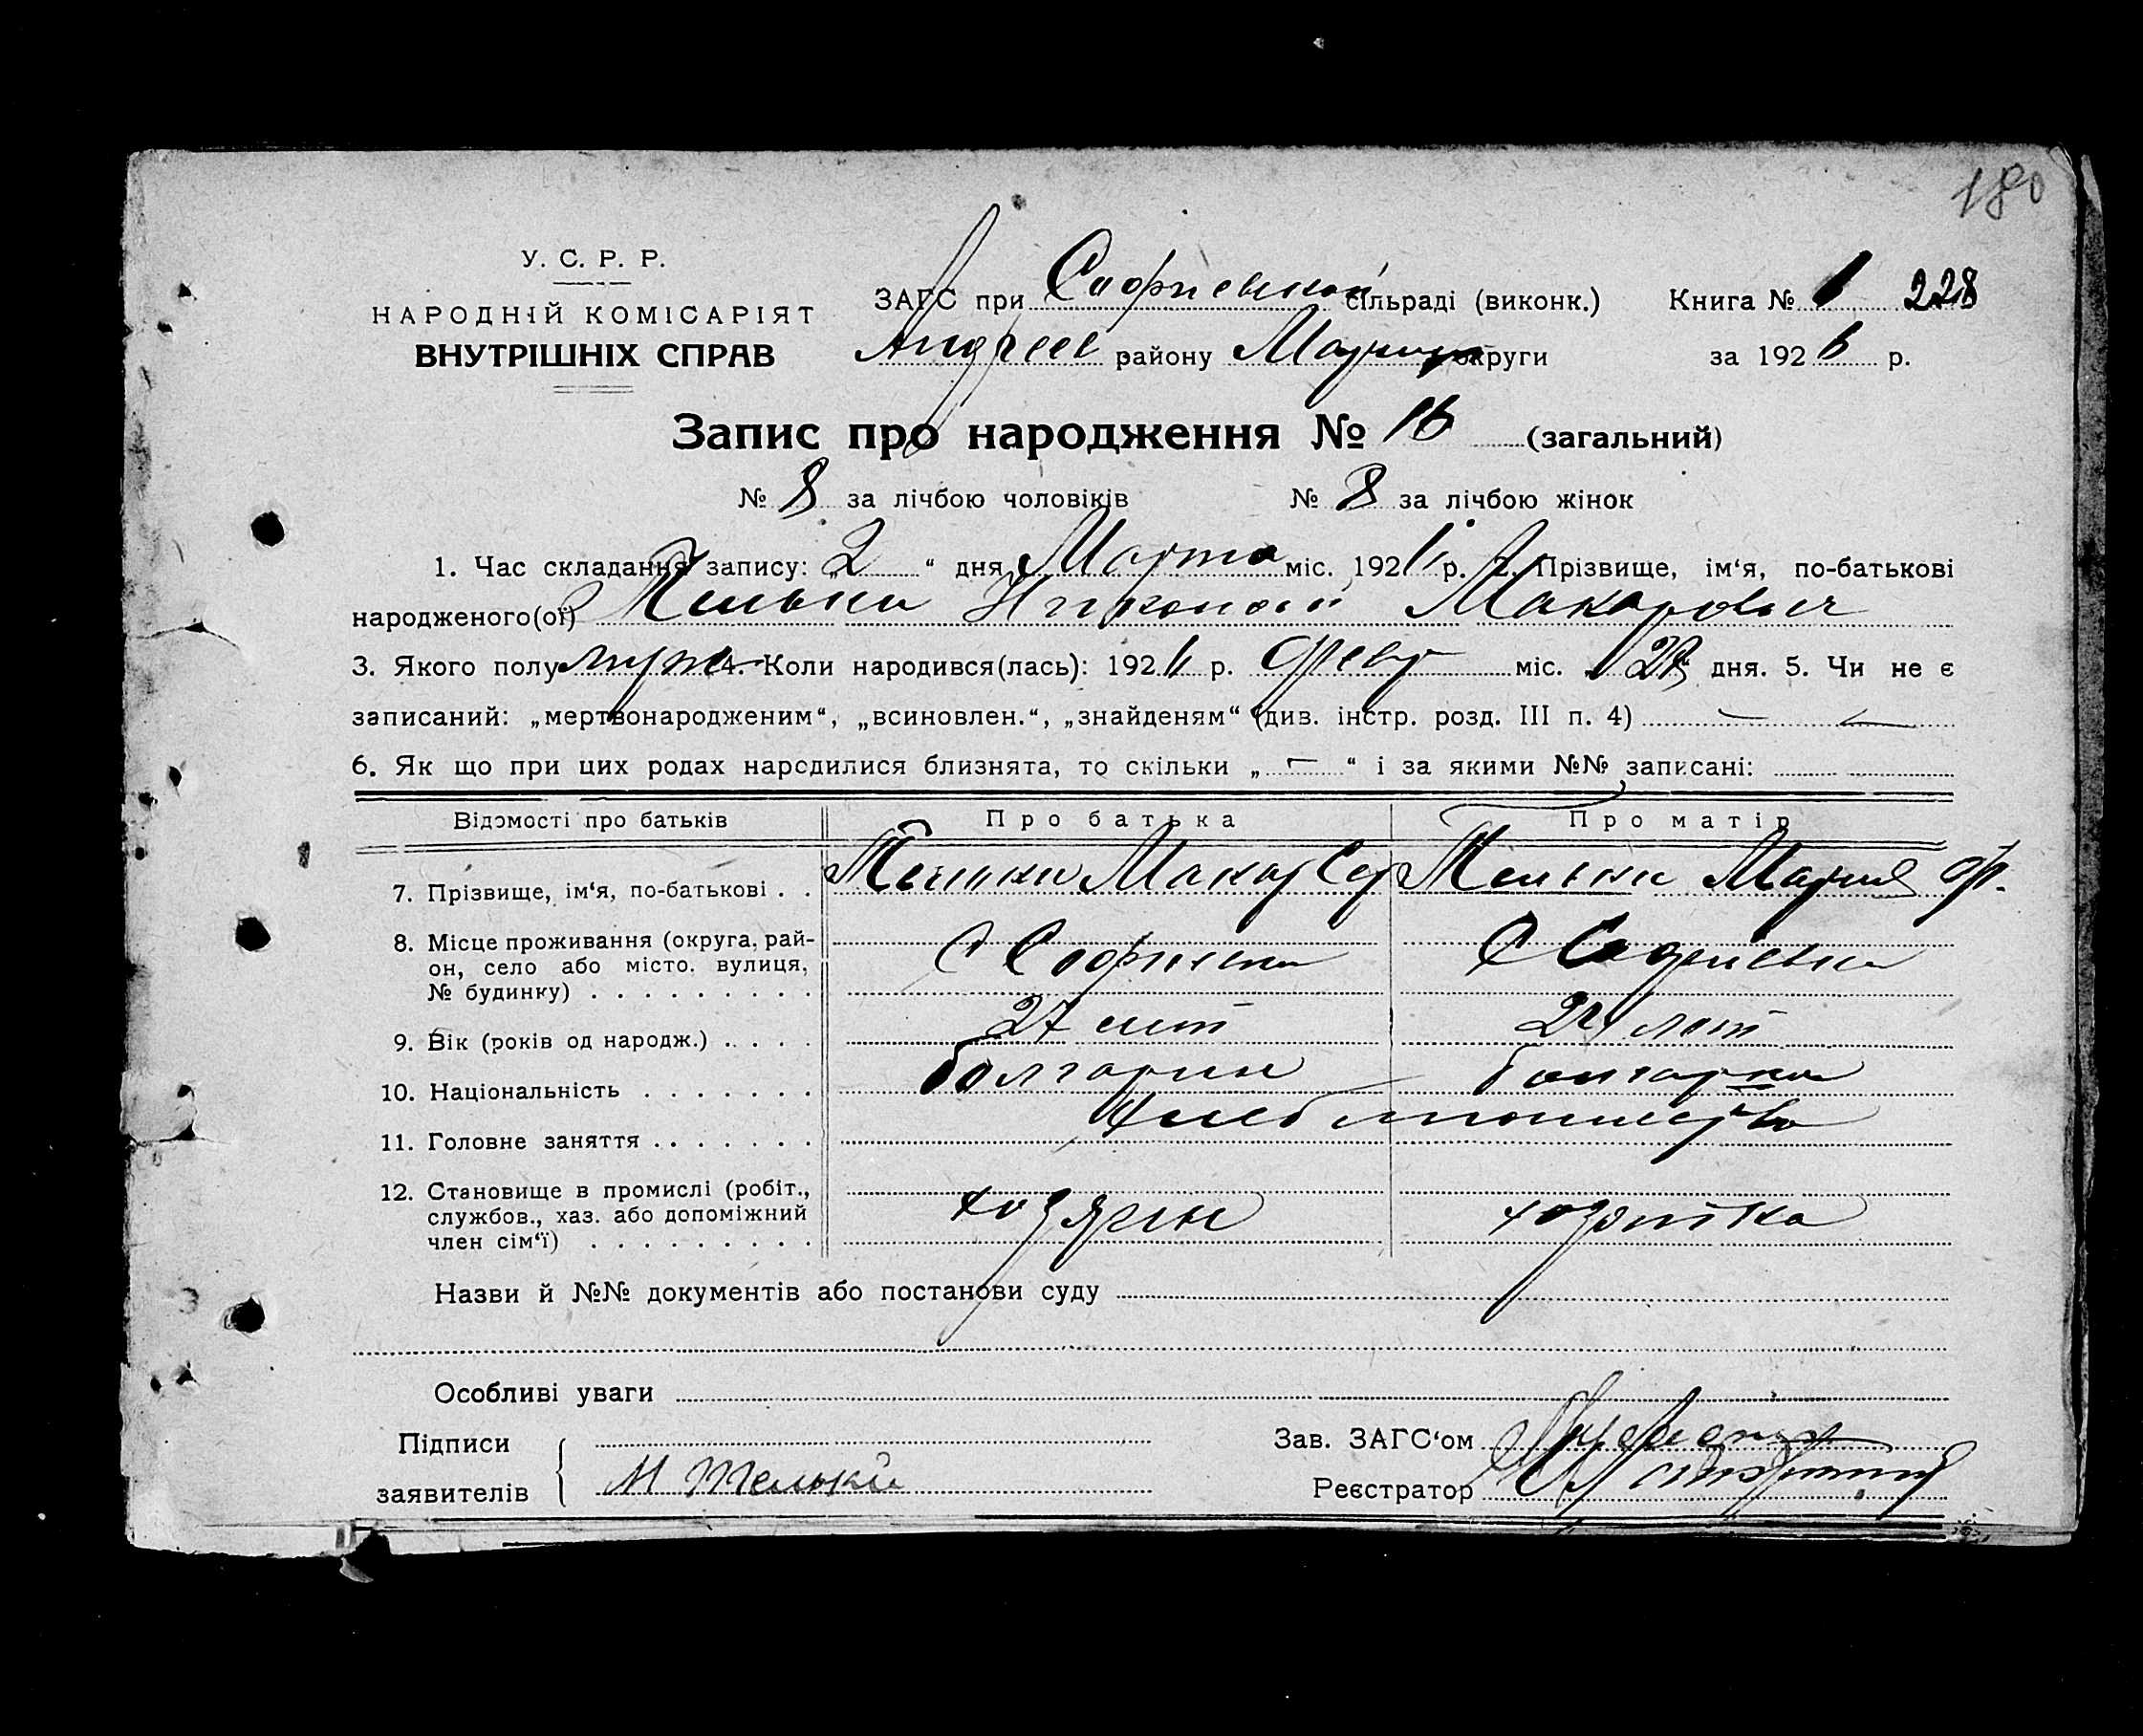 180
У. С. Р. Р.
НАРОДНІЙ КОМІСАРІЯТ
ВНУТРІШНІХ СПРАВ
ЗАГС при Софиевской сільраді (виконк.) Книга № 1 228
Андреев району Мариуп округи за 1926 р.
Запис про народження № 16 (загальний)
№ 8 за лічбою чоловіків № 8 за лічбою жінок
1. Час складання запису: „2“ дня Марта міс. 1926 р. 2. Прізвище, ім‘я, по-батькові
народженого(ої) Пельки Николай Макарович
3. Якого полу муж 4. Коли народився(лась): 1926 р. февр міс. дня. 5. Чи не є
записаний: „мертвонародженим“, „всиновлен.“, „знайденям“ (див. інстр. розд. III п. 4) — —
6. Як що при цих родах народилися близнята, то скільки „—“ і за якими №№ записані:
Відомості про батьків Про батька Про матір
7. Прізвище, ім‘я, по-батькові . . Макар Мария
8. Місце проживання (округа, рай-
он, село або місто. вулиця, С Софиевка С Софиевка
№ будинку) . . . . . . . . .
9. Вік (років од народж.) . . . . 27 лет 24 лет
10. Національність . . . . . . . болгарин болгарка
11. Головне заняття . . . . . . . Хлебопашество
12. Становище в промислі (робіт.,
службов., хаз. або допоміжний хозяин хозяйка
член сім‘ї) . . . . . . . . .
Назви й №№ документів або постанови суду
Особливі уваги
Підписи
заявителів М
Зав. ЗАГС‘ом
Реєстратор